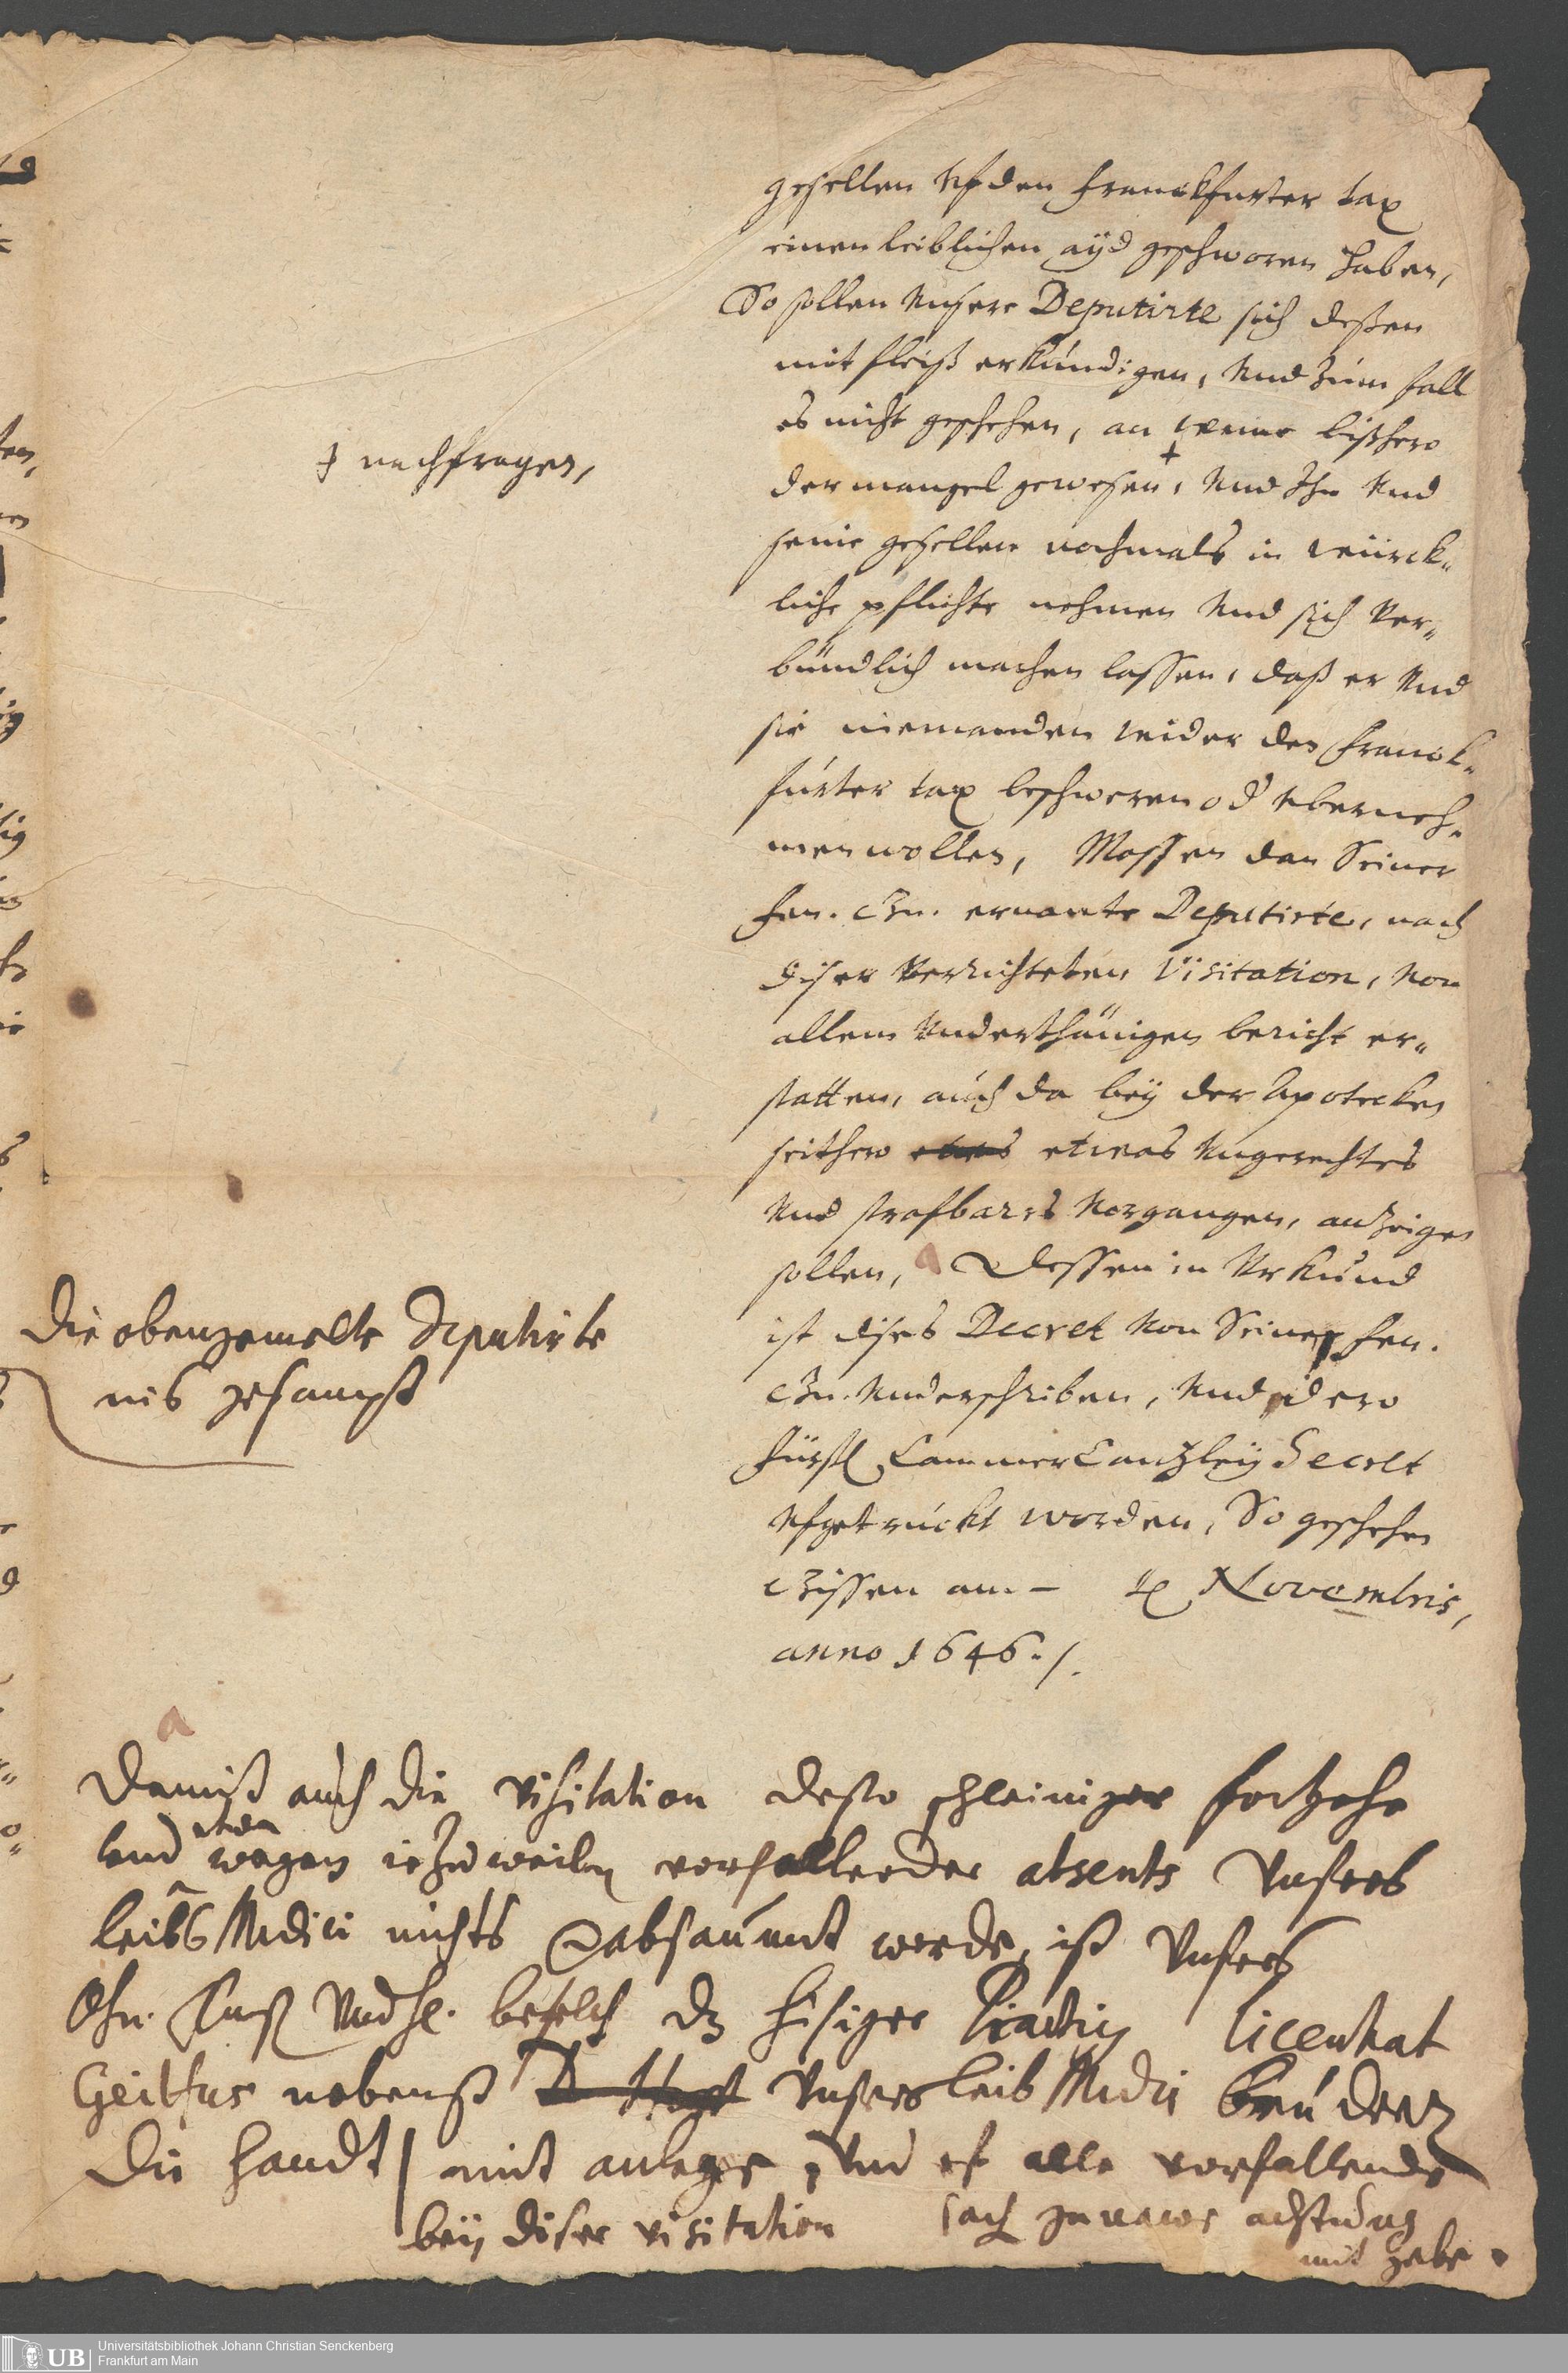 gesellen vf den Franckfurter tax
einen leiblichen ayd geschworen haben,
So sollen Unsere Deputirte sich deßen
mit fleiß erkundigen, Und zum fall
es nicht geschehen, an weme bißhero
der mangel gewesen, Und Ihn Und
seine gesellen nochmals in würck-
liche pflichte nehmen Und sich Ver-
bündlich machen lassen, daß er Und
sie niemanden wider den Franck-
furter tax beschweren od Uberneh-
men wollen, Massen dan Seiner
Fen. Gn. ernante Deputirte, nach
diser Verrichteten Visitation, Von
allem Underthänigen bericht er-
statten, auch da bey der Apotecken
seithero etwas Ungerechtes
Und strafbares Vorgangen, anzeigen
sollen, a Dessen in Urkund
ist dises Decret Von Seiner Fen.
Gn. Underschriben, Und dero
Fürstl CammerCantzley Secret
Ufgetruckt worden, So geschehen
Gissen am - Novembris,
anno 1646 ./.
+ nachfragen,
Die obengemelte Deputirte
ins gesampt
a
Damit auch die visitation desto schleiniger fortgehe
Und etwan wegen iezuweilen vorfallender absents Unsers
leibs Medici nichts verabsaumt werde, ist Unsers
befelch dz hisiger licentiat
nebenst Unsers leib Medici
Die handt mit anlege, Und vf alle vorfallende
bey diser visitation sach genawe achtung
mit gebe.
UB Universitätsbibliothek Johann Christian Senckenberg
Frankfurt am Main